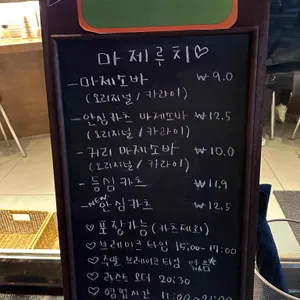 마제루치♡
- 마제소바 ₩9.0
(오리지널 / 카라이)
- 안심카츠 마제소바 ₩12.5
(오리지널 / 카라이)
- 커리 마제소바 ₩10.0
(오리지널 / 카라이)
- 등심 카츠 ₩11.9
- new 안심카츠 ₩12.5
♡ 포장가능 (카츠제외)
♡ 브레이크 타임 15:00-17:00
♡ 주말 브레이크 타임
♡ 라스트 오더 20:30
♡ 영업시간